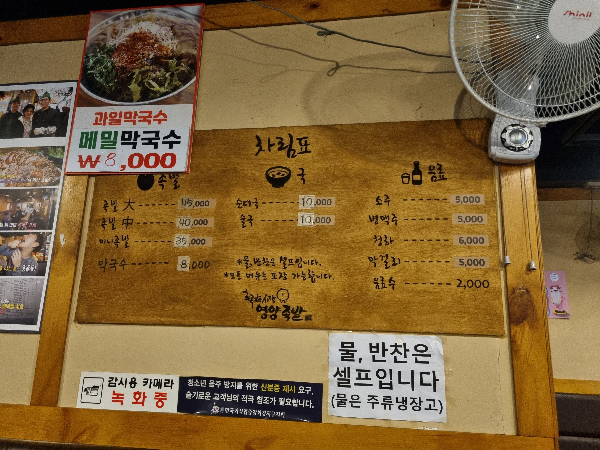 과일막국수
메밀막국수
₩8,000
차림표
족발
족발 大 45,000
족발 中 40,000
미니족발 35,000
막국수 8,000
국
순대국 10,000
술국 10,000
*물,반찬은 셀프입니다.
*모든 메뉴는 포장 가능합니다.
영양족발
음료
소주 5,000
병맥주 5,000
청하 6,000
막걸리 5,000
음료수 2,000
shinil
물, 반찬은
셀프입니다
(물은 주류냉장고)
감시용 카메라
녹화중
청소년 음주 방지를 위한 신분증 제시 요구,
슬기로운 고객님의 적극 협조가 필요합니다.